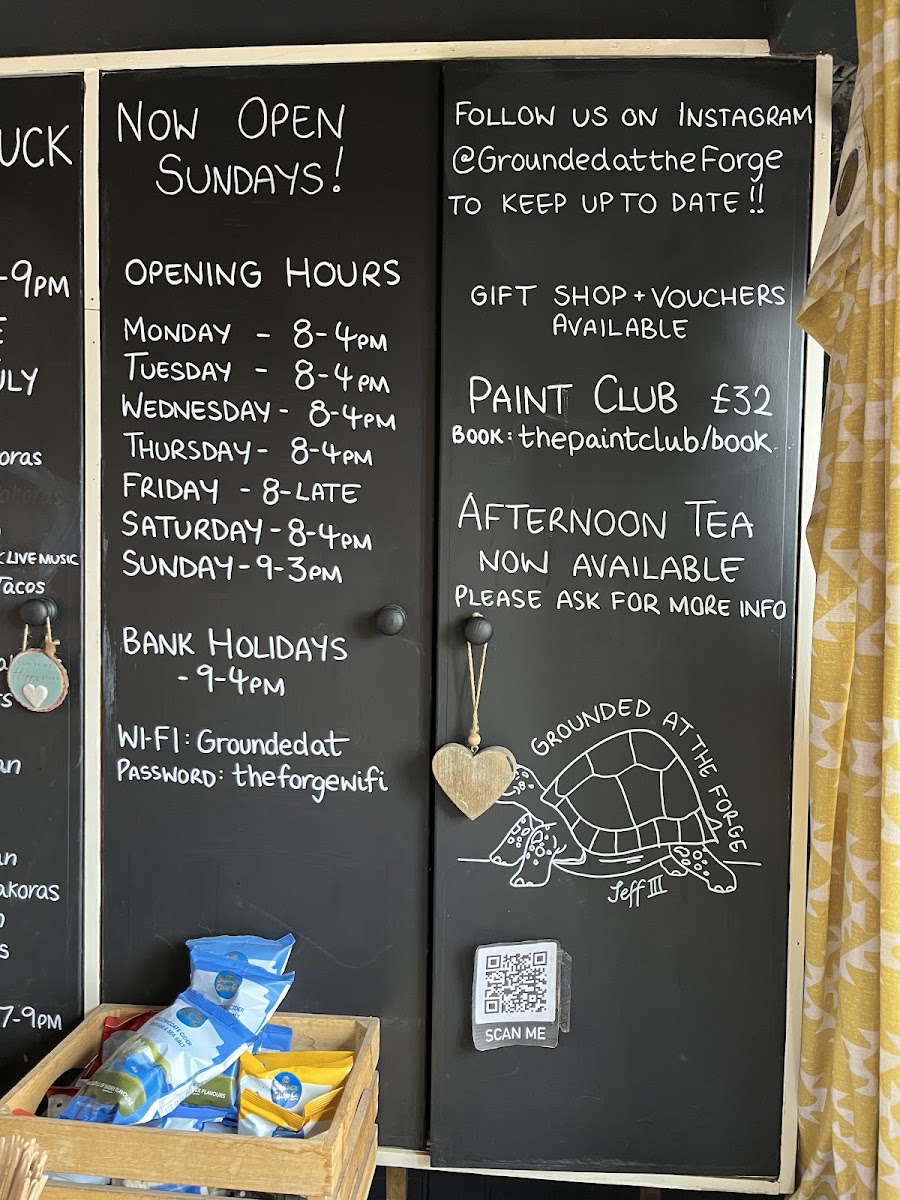 UCK
-9PM
ULY
oras
LIVE MUSIC
Tacos
an
akoras
7-9PM
NOW OPEN
SUNDAYS!
OPENING HOURS
MONDAY - 8-4PM
TUESDAY - 8-4PM
WEDNESDAY - 8-4PM
THURSDAY - 8-4PM
FRIDAY - 8-LATE
SATURDAY - 8-4PM
SUNDAY - 9-3PM
BANK HOLIDAYS
- 9-4PM
WI-FI: Groundedat
PASSWORD: theforgewifi
FOLLOW US ON INSTAGRAM
@GroundedattheForge
TO KEEP UP TO DATE!!
GIFT SHOP + VOUCHERS
AVAILABLE
PAINT CLUB £32
BOOK: thepaintclub/book
AFTERNOON TEA
NOW AVAILABLE
PLEASE ASK FOR MORE INFO
GROUNDED AT THE FORGE
Jeff III
SCAN ME
CIDER
& SEA SALT